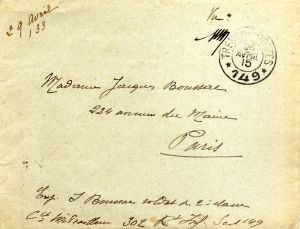 29 avril
133
Vu
TRESOR ET POSTES
AVRIL
15
* 149 *
Madame Jacques Bousser
224 avenue du Maine
Paris
Exp. J Bousser soldat de 2e classe
Cie 302 Rt Inf. Sect 149